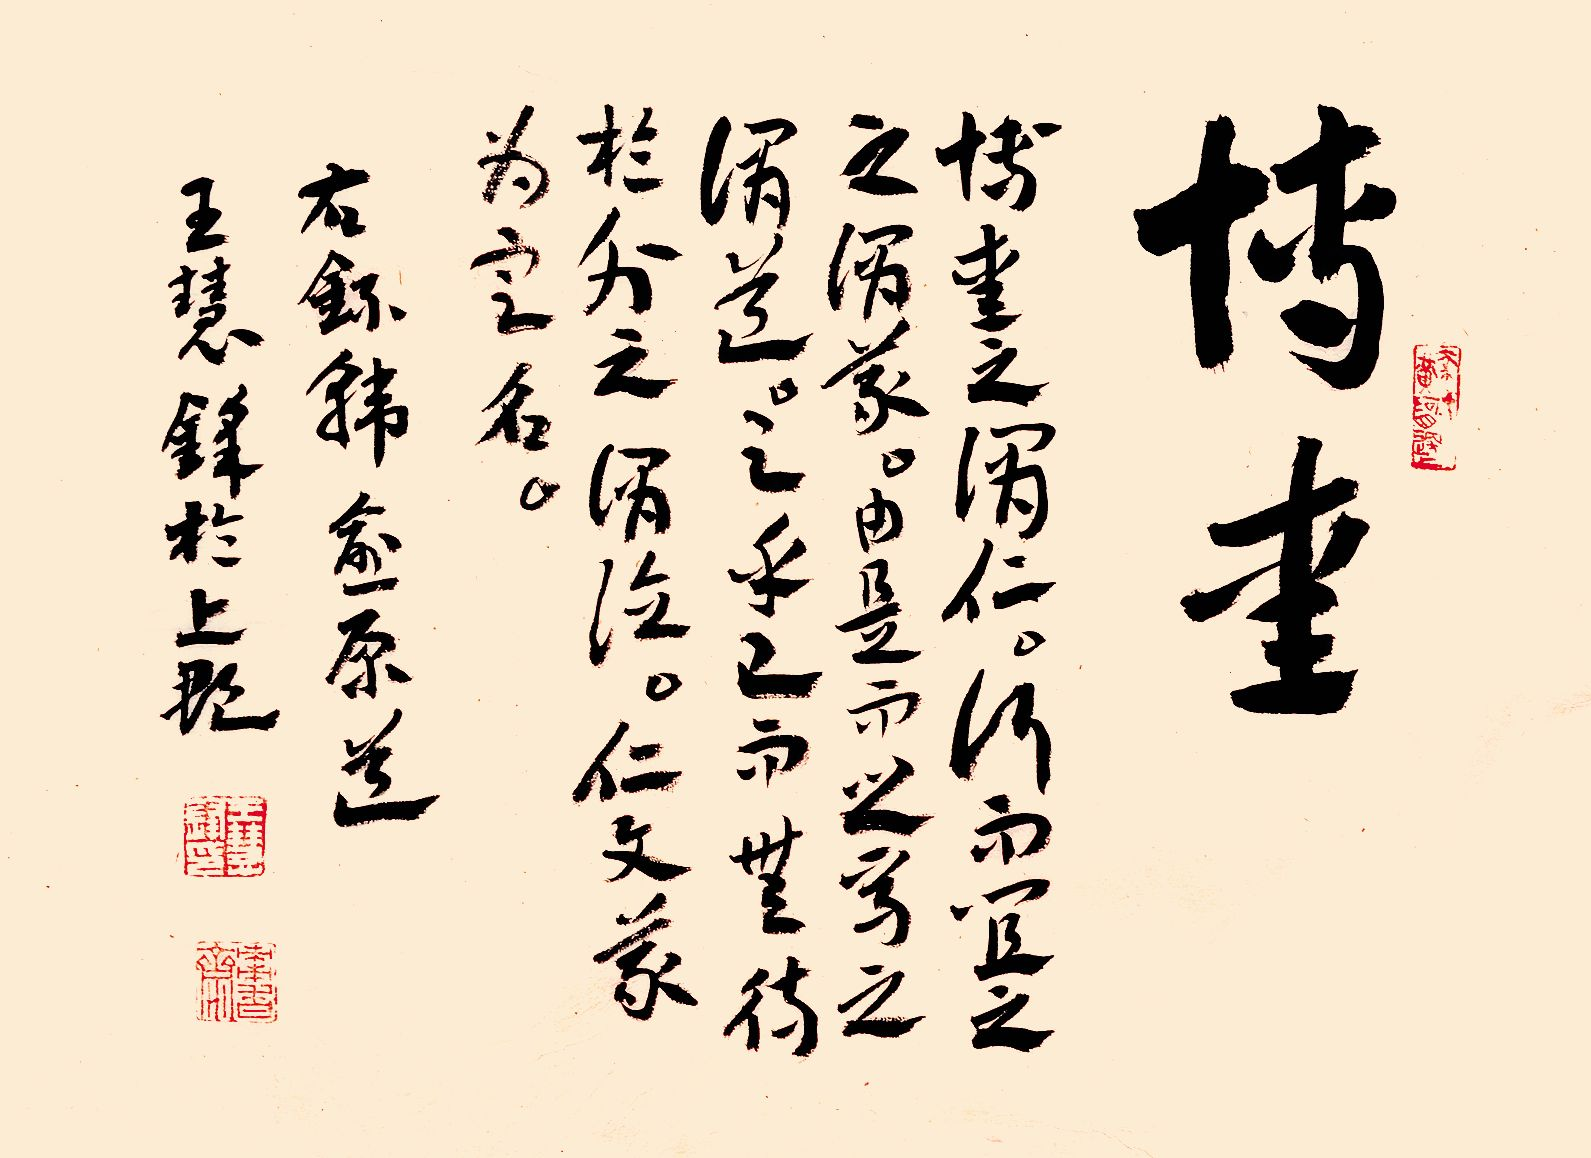 博愛
博愛之謂仁。行而宜之
之謂義。由是而之焉之
謂道。足乎己而無待
於外之謂德。仁与義
为定名。
右録韓愈原道
王慧鋒於上